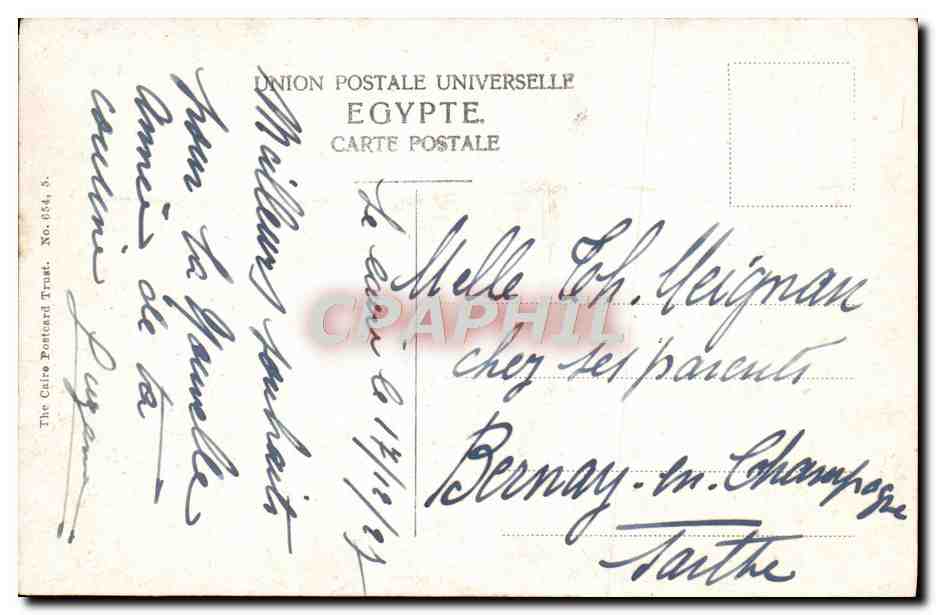 UNION POSTALE UNIVERSELLE
EGYPTE.
CARTE POSTALE
The Cairo Postcard Trust. No. 654, 5.
Meilleurs souhaits
pour la Nouvelle
Année de ta
cousine
Le Caire le 17/12/27
Melle Th. Meignan
chez ses parents
Bernay-en-Champagne
Sarthe
CPAPHIL